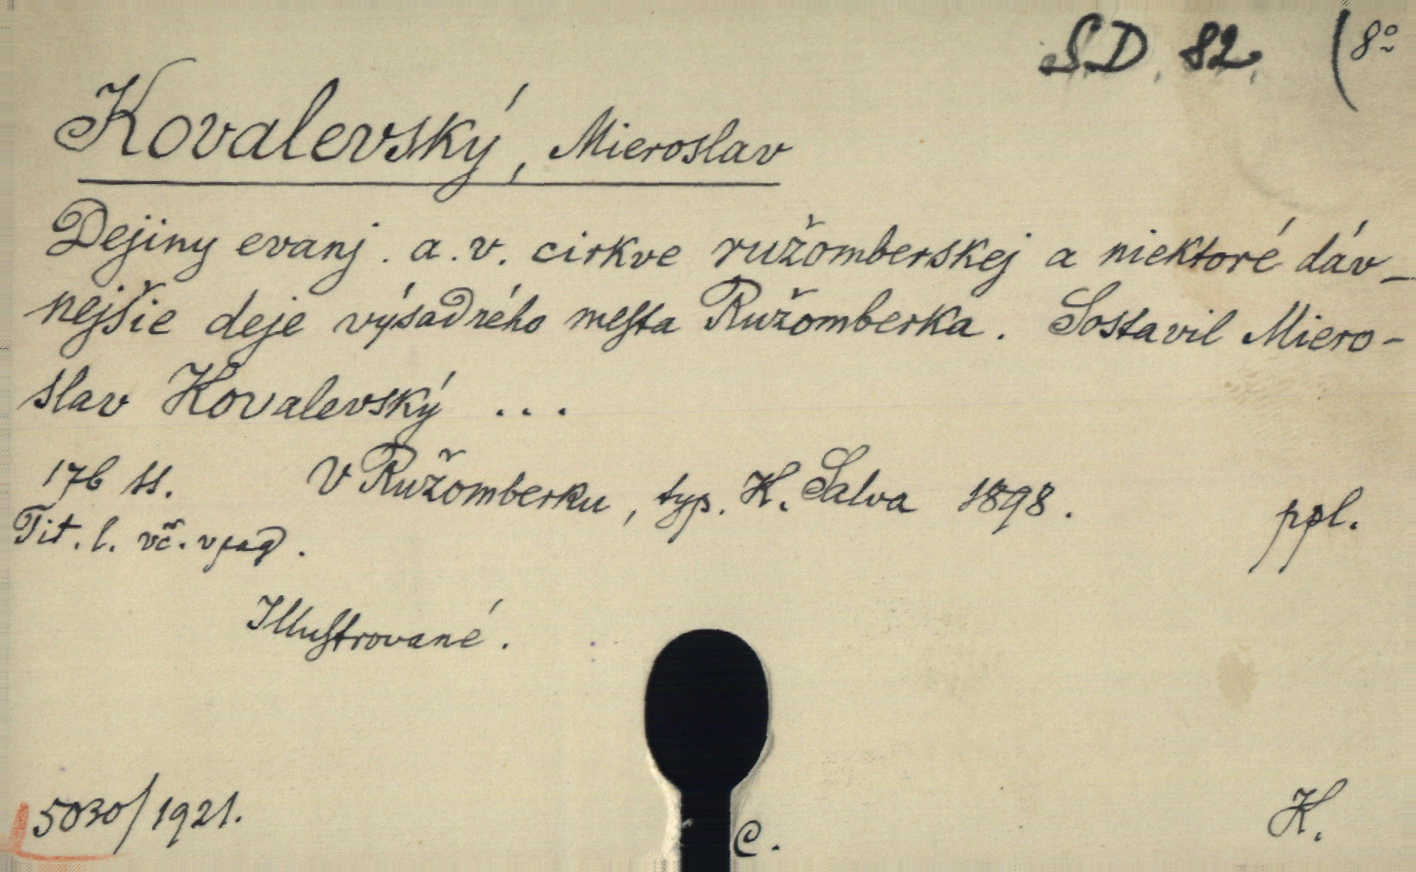 S.D. 82. (8°
Kovalevský, Mieroslav
Dejiny evanj. a. v. cirkve ružomberskej a niektoré dáv-
nejšie deje výsadného mesta Ružomberka. Sostavil Miero-
slav Kovalevský ...
176 ss. V Ružomberku, typ. K. Salva 1898. ppl.
Tit. l. vč. v pag.
Illustrované.
5030/1921. C. K.